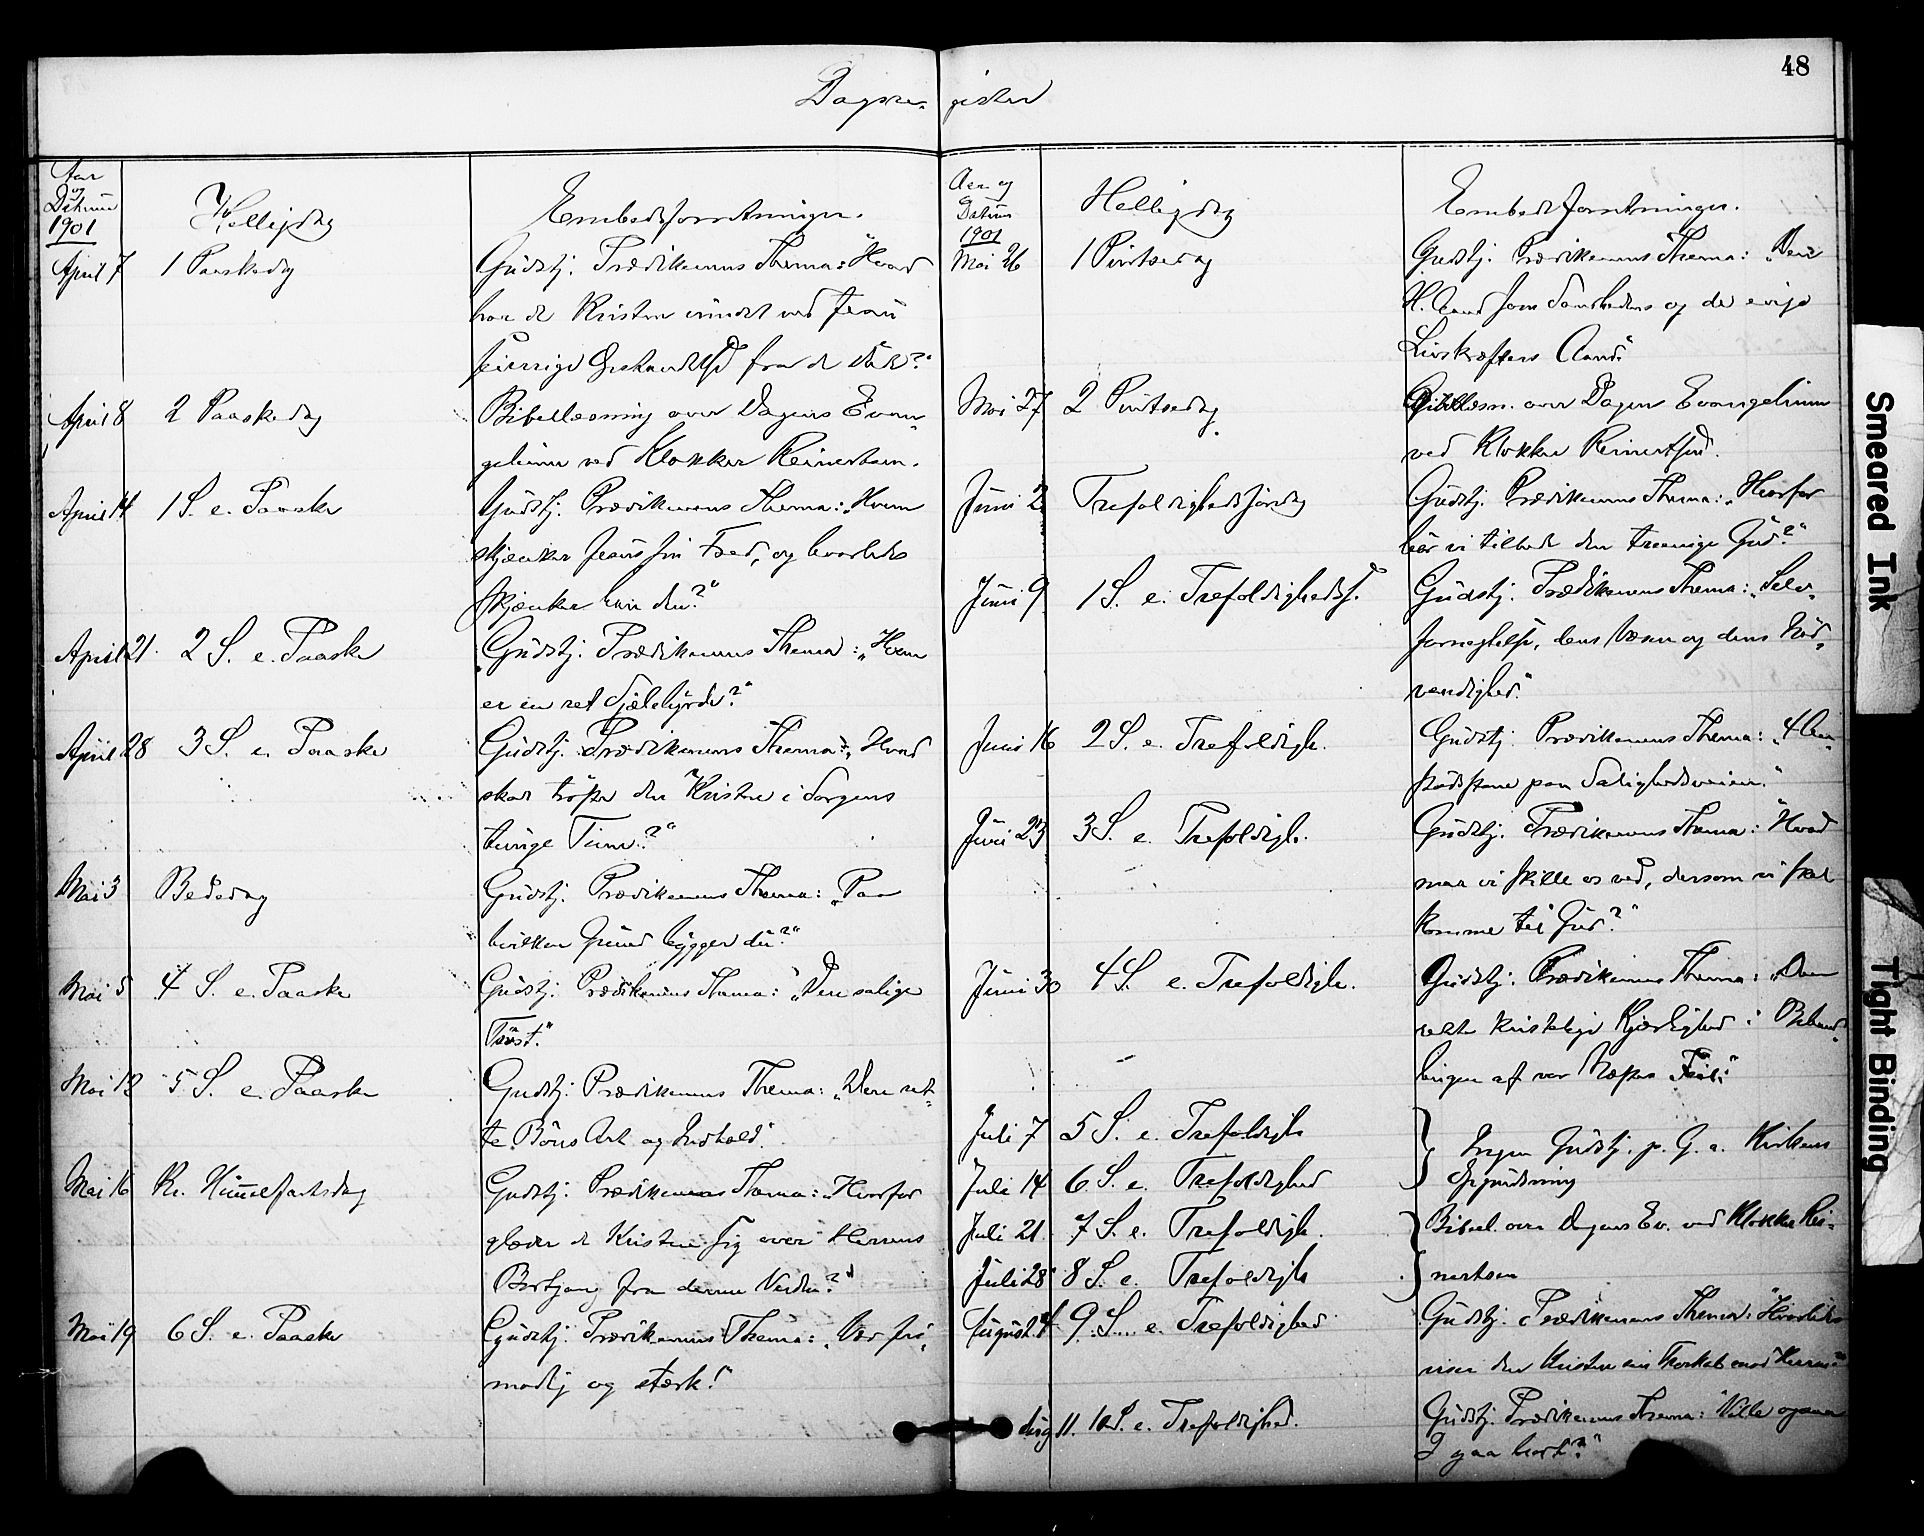 48
Dagsre- gister
Aar
og
Datum
1901
Helligdag
Embedsforretninger.
April 7
1 Paaskedag
Gudstj. Prædikenens Thema: "Hvad
har de Kristne vundet ved Jesu
seierrige Opstandelse fra de Døde?"
April 8
2 Paaskedag
Bibellæsning over Dagens Evan-
gelium ved Klokker Reinertsen.
April 14
1 S. e. Paaske
Gudstj. Prædikenens Thema: "Hvem
skjenker Jesus sin Fred, og hvorledes
skjenker han den?"
April 21.
2 S. e. Paaske
Gudstj. Prædikenens Thema: "Hvem
er en ret Sjælehyrde?"
April 28
3 S. e. Paaske
Gudstj. Prædikenens Thema: "Hvad
skal trøste den Kristne i Sorgens
tunge Time?"
Mai 3
Bededag
Gudstj. Prædikenens Thema: "Paa
hvilken Grund bygger du?"
Mai 5
4 S. e. Paaske
Gudstj. Prædikenens Thema: "Den salige
Trøst."
Mai 12
5 S. e. Paaske
Gudstj. Prædikenens Thema: "Den ret-
te Bøns Art og Indhold."
Mai 16
Kr. Himmelfartsdag
Gudstj. Prædikenens Thema: "Hvorfor
glæder de Kristne sig over Herrens
Bortgang fra denne Verden?"
Mai 19
6 S. e. Paaske
Gudstj. Prædikenens Thema: "Vær fri-
modig og stærk!"
Aar og
Datum
1901
Helligdag
Embedsforretninger.
Mai 26
1 Pintsedag
Gudstj. Prædikenens Thema: "Den
H. Aand som Sandhedens og de evige
Livskræfters Aand."
Mai 27
2 Pintsedag.
Bibellæsn. over Dagens Evangelium
ved Klokker Reinertsen.
Juni 2
Trefoldighedssøndag
Gudstj. Prædikenens Thema: "Hvorfor
bør vi tilbede den treenige Gud?"
Juni 9
1 S. e. Trefoldighedsf.
Gudstj. Prædikenens Thema: "Selv-
fornegtelse, dens Væsen og dens Nød-
vendighed."
Juni 16
2 S. e. Trefoldigh.
Gudstj. Prædikenens Thema: "4
paa Salighedsveien."
Juni 23
3 S. e. Trefoldigh.
Gudstj. Prædikenens Thema: "Hvad
maa vi skille os ved, dersom vi skal
komme til Gud?"
Juni 30
4 S. e. Trefoldigh.
Gudstj. Prædikenens Thema: "Den
rette kristelige Kjærlighed i Behand-
lingen af vor Næstes Feil."
Juli 7
5 S. e. Trefoldigh
Juli 14
6 S. e. Trefoldighed
Ingen Gudstj. p. G. a. Kirkens
Oppudsning
Juli 21.
7 S. e. Trefoldigh.
Juli 28
8 S. e. Trefoldigh
Bibel. over Dagens Ev. ved Klokker Rei-
nertsen
August 4
9 S. e. Trefoldighed
Gudstj. Prædikenens Thema: "Hvorledes
viser den Kristne sin Troskab mod Herren?"
Aug 11.
10 S. e. Trefoldighed.
Gudstj. Prædikenens Thema: "Ville ogsaa
I gaa bort?"
Smeared Ink
Tight Binding